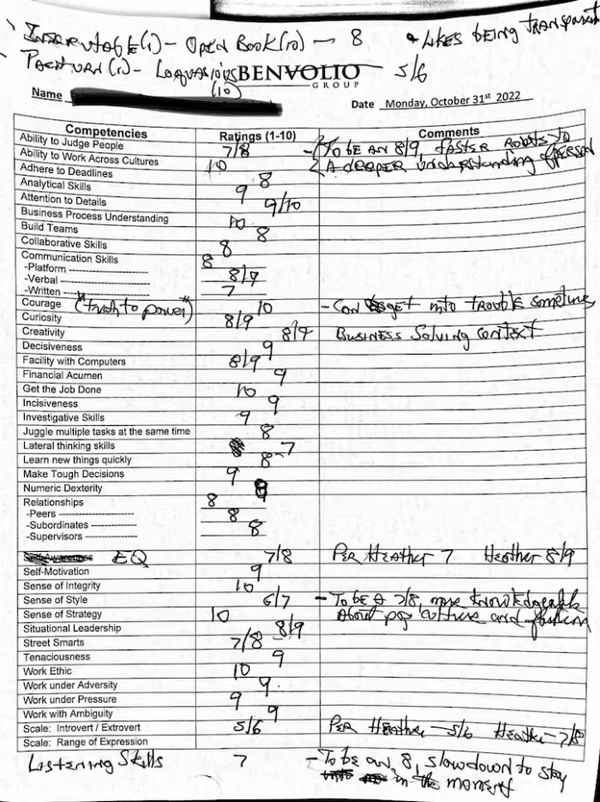 Inscrutable(1) - Open Book(10) - 8 * Likes being transparent
Taciturn(1) - Loquacious (10) 5/6
BENVOLIO
GROUP
Name
Date Monday, October 31st 2022
Competencies Ratings (1-10) Comments
Ability to Judge People 7/8 - To be an 8/9, faster route to
Ability to Work Across Cultures 10 A deeper understanding of person
Adhere to Deadlines 8
Analytical Skills 9
Attention to Details 9/10
Business Process Understanding 10
Build Teams 8
Collaborative Skills 8
Communication Skills
-Platform 8
-Verbal 8/9
-Written 7
Courage "(truth to power)" 10 - Can get into trouble sometimes
Curiosity 8/9
Creativity 8/9 Business Solving context
Decisiveness 9
Facility with Computers 8/9
Financial Acumen 9
Get the Job Done 10
Incisiveness 9
Investigative Skills 9
Juggle multiple tasks at the same time 8
Lateral thinking skills 7
Learn new things quickly 8
Make Tough Decisions 9
Numeric Dexterity
Relationships
-Peers 8
-Subordinates 8
-Supervisors 8
EQ 7/8 Per Heather 7 Heather 8/9
Self-Motivation 9
Sense of Integrity 10
Sense of Style 6/7 - To be a 7/8, more knowledgeable
Sense of Strategy 10 About pop culture and fashion
Situational Leadership 8/9
Street Smarts 7/8
Tenaciousness 9
Work Ethic 10
Work under Adversity 9
Work under Pressure 9
Work with Ambiguity 9
Scale: Introvert / Extrovert 5/6 Per Heather - 5/6 Heather - 7/8
Scale: Range of Expression
Listening Skills 7 - To be an 8, slowdown to stay
in the moment